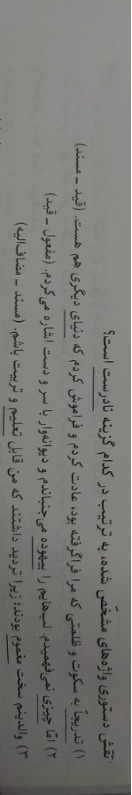 نقش دستوری واژه‌های مشخّص شده، به ترتیب در کدام گزینه نادرست است؟
۱) تدریجاً به سکوت و ظلمتی که مرا فراگرفته بود، عادت کردم و فراموش کردم که دنیای دیگری هم هست. (قید – مسند)
۲) امّا چیزی نمی‌فهمیدم. لب‌هایم را بیهوده می‌جنباندم و دیوانه‌وار با سر و دست اشاره می‌کردم. (مفعول – قید)
۳) والدینم سخت مغموم بودند؛ زیرا تردید داشتند که من قابل تعلیم و تربیت باشم. (مسند – مضاف‌الیه)